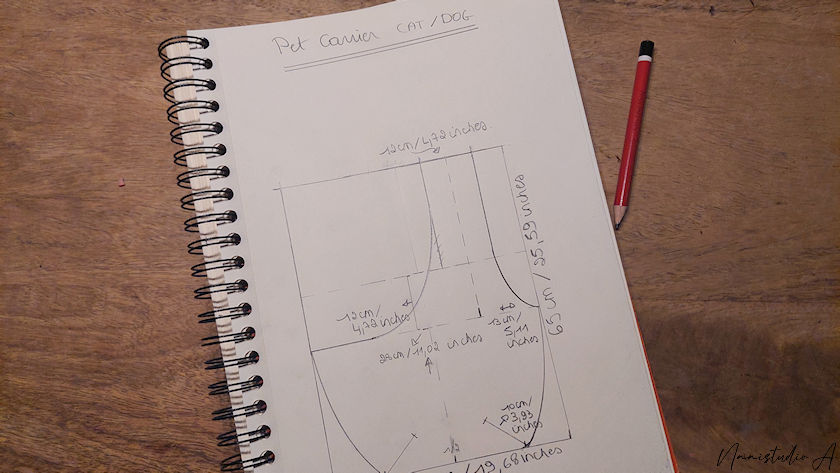 Pet Carrier CAT/DOG
12cm/4,72 inches.
65 cm / 25,59 inches
12cm/
4,72 inches
13cm/
5,11
inches
28cm/11,02 inches
10cm/
3,93
inches
1/2
/19,68 inches
Nmnistudio A